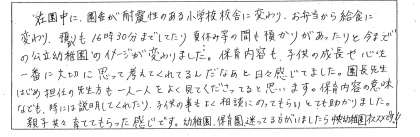 在園中に、園舎が耐震性のある小学校校舎に変わり、お弁当から給食に
変わり、預りも16時30分までしてたり夏休み等の間も預かりがあったりと今まで
の公立幼稚園のイメージが変わりました。保育内容も、子供の成長や心を
一番に大切に思って考えてくれてるんだなあと日々感じてました。園長先生
はじめ担任の先生方も一人一人をよく見てくださってると思います。保育内容の意味
なども、時には説明してくれたり、子供の事もよく相談にのってもらいとても助かりました。
親子共々育ててもらった感じです。幼稚園、保育園迷ってる方がいましたら幼稚園オススメです!!